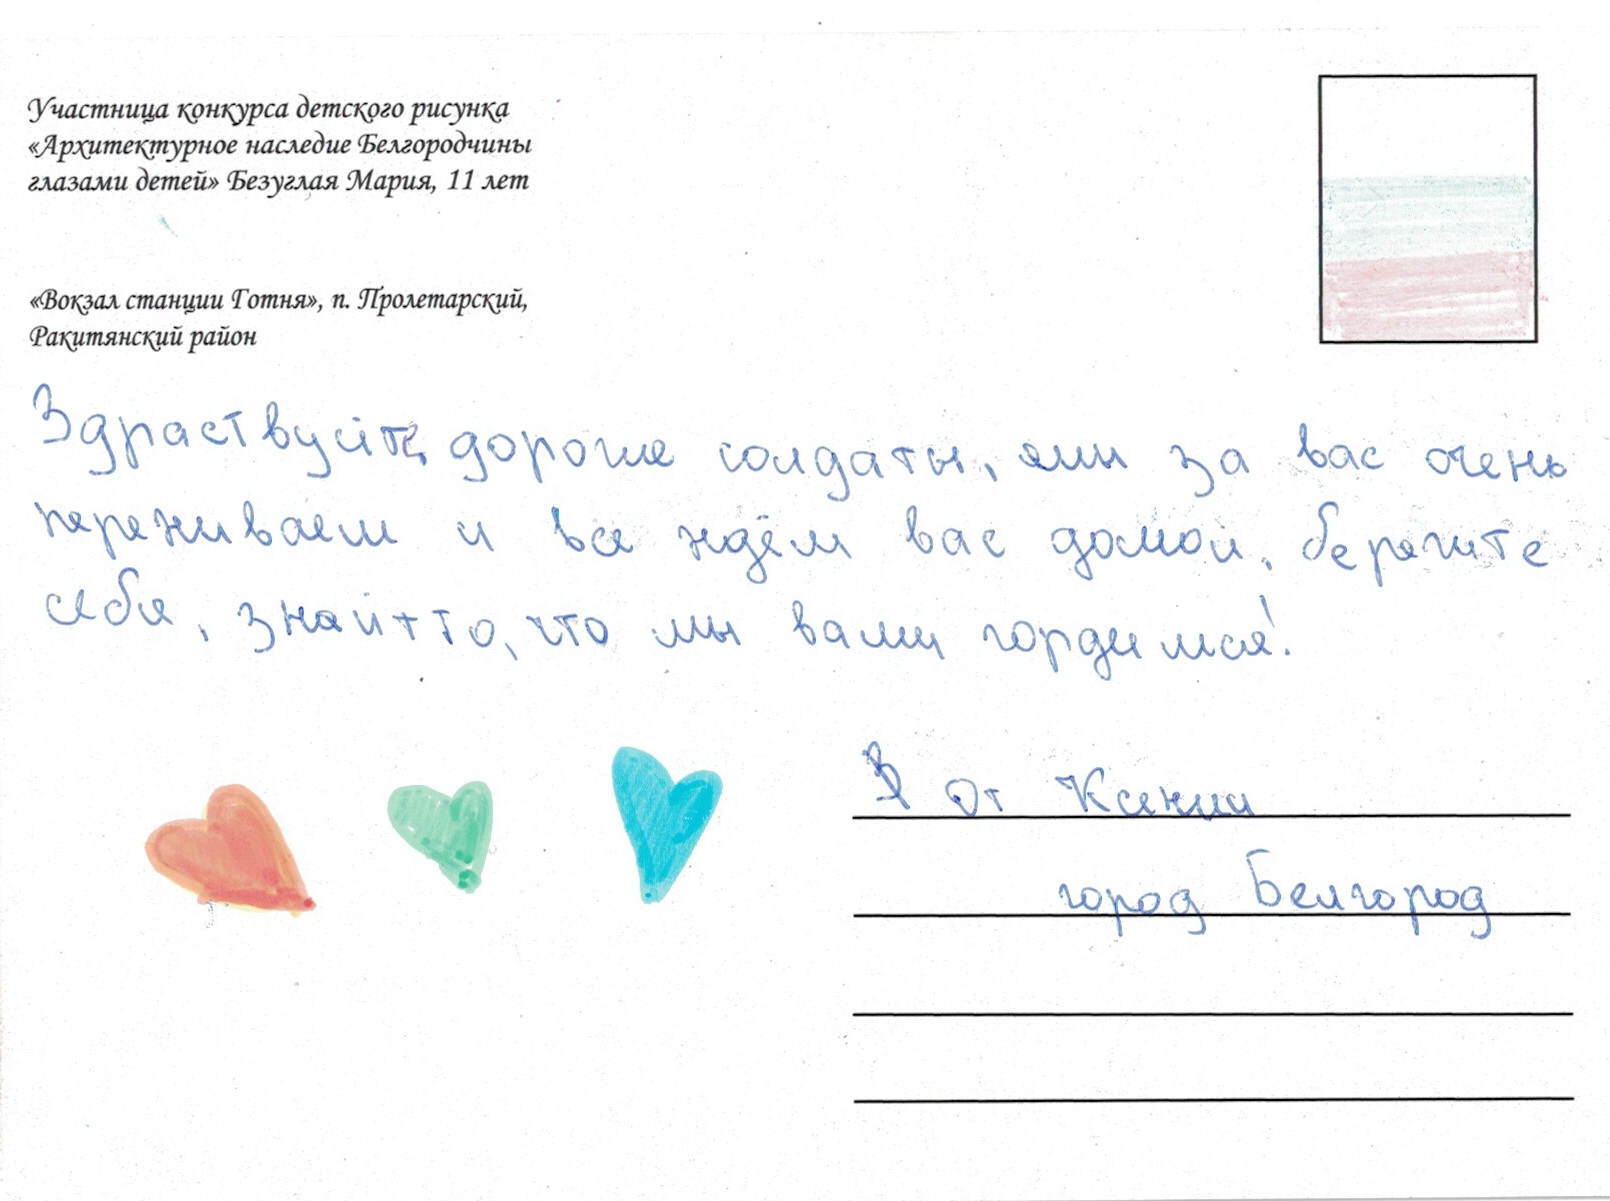 Участница конкурса детского рисунка
«Архитектурное наследие Белгородчины
глазами детей» Безуглая Мария, 11 лет
«Вокзал станции Готня», п. Пролетарский,
Ракитянский район
Здраствуйте, дорогие солдаты, мы за вас очень
переживаем и все ждём вас домой, берегите
себя, знайтто, что мы вами гордимся!
От Ксении
город Белгород